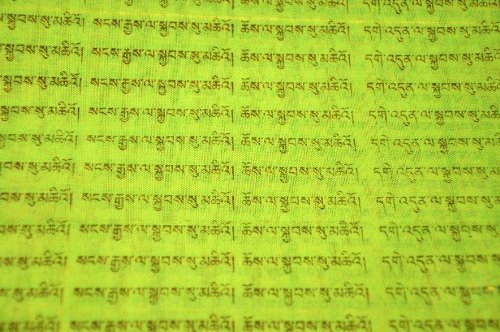 སྐྱབས་སུ་མཆིའོ། སངས་རྒྱས་ལ་སྐྱབས་སུ་མཆིའོ། ཆོས་ལ་སྐྱབས་སུ་མཆིའོ། དགེ་འདུན་ལ་སྐྱབས་སུ་
སྐྱབས་སུ་མཆིའོ། སངས་རྒྱས་ལ་སྐྱབས་སུ་མཆིའོ། ཆོས་ལ་སྐྱབས་སུ་མཆིའོ། དགེ་འདུན་ལ་སྐྱབས་སུ་
སྐྱབས་སུ་མཆིའོ། སངས་རྒྱས་ལ་སྐྱབས་སུ་མཆིའོ། ཆོས་ལ་སྐྱབས་སུ་མཆིའོ། དགེ་འདུན་ལ་སྐྱབས་སུ་
སྐྱབས་སུ་མཆིའོ། སངས་རྒྱས་ལ་སྐྱབས་སུ་མཆིའོ། ཆོས་ལ་སྐྱབས་སུ་མཆིའོ། དགེ་འདུན་ལ་སྐྱབས་སུ་
སྐྱབས་སུ་མཆིའོ། སངས་རྒྱས་ལ་སྐྱབས་སུ་མཆིའོ། ཆོས་ལ་སྐྱབས་སུ་མཆིའོ། དགེ་འདུན་ལ་སྐྱབས་སུ་
སྐྱབས་སུ་མཆིའོ། སངས་རྒྱས་ལ་སྐྱབས་སུ་མཆིའོ། ཆོས་ལ་སྐྱབས་སུ་མཆིའོ། དགེ་འདུན་ལ་སྐྱབས་
སྐྱབས་སུ་མཆིའོ། སངས་རྒྱས་ལ་སྐྱབས་སུ་མཆིའོ། ཆོས་ལ་སྐྱབས་སུ་མཆིའོ། དགེ་འདུན་ལ་སྐྱབས་
སྐྱབས་སུ་མཆིའོ། སངས་རྒྱས་ལ་སྐྱབས་སུ་མཆིའོ། ཆོས་ལ་སྐྱབས་སུ་མཆིའོ། དགེ་འདུན་ལ་སྐྱབས་
སུ་མཆིའོ། སངས་རྒྱས་ལ་སྐྱབས་སུ་མཆིའོ། ཆོས་ལ་སྐྱབས་སུ་མཆིའོ། དགེ་འདུན་ལ་སྐྱབས་
སུ་མཆིའོ། སངས་རྒྱས་ལ་སྐྱབས་སུ་མཆིའོ། ཆོས་ལ་སྐྱབས་སུ་མཆིའོ། དགེ་འདུན་ལ་སྐྱབས་
སུ་མཆིའོ། སངས་རྒྱས་ལ་སྐྱབས་སུ་མཆིའོ། ཆོས་ལ་སྐྱབས་སུ་མཆིའོ། དགེ་འདུན་ལ་